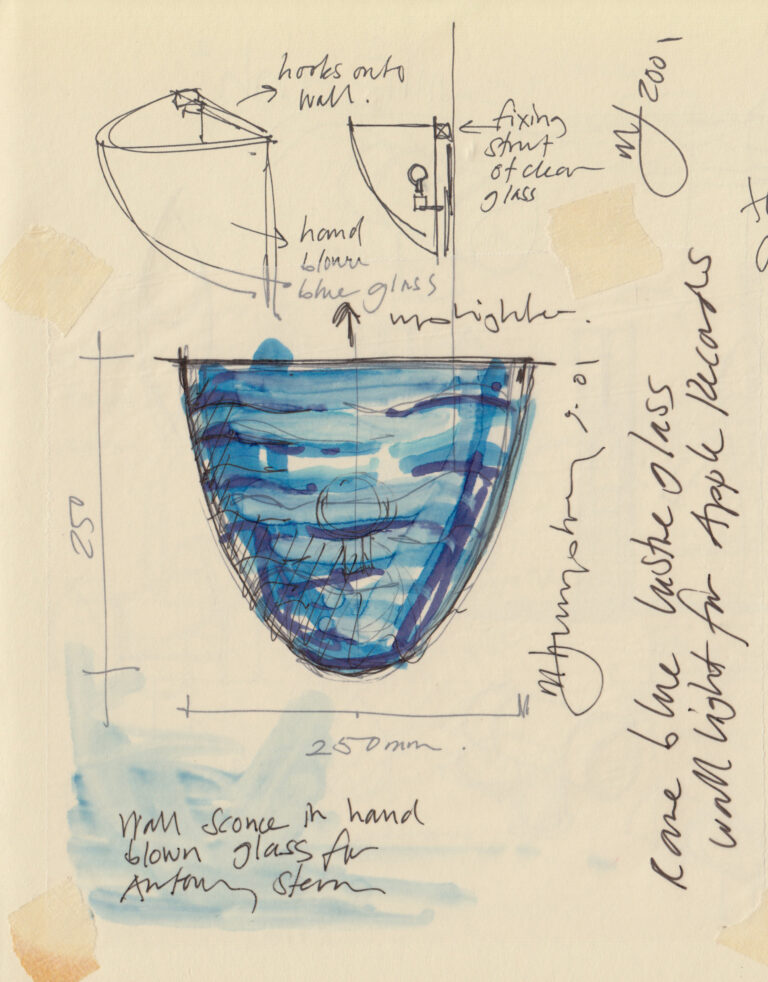 hooks onto
wall.
fixing
strut
of clear
glass
hand
blown
blue glass
uplighter.
2001
250
250mm.
Rare blue lustre glass
wall light for Apple Records
Wall sconce in hand
blown glass for
Antony Stern